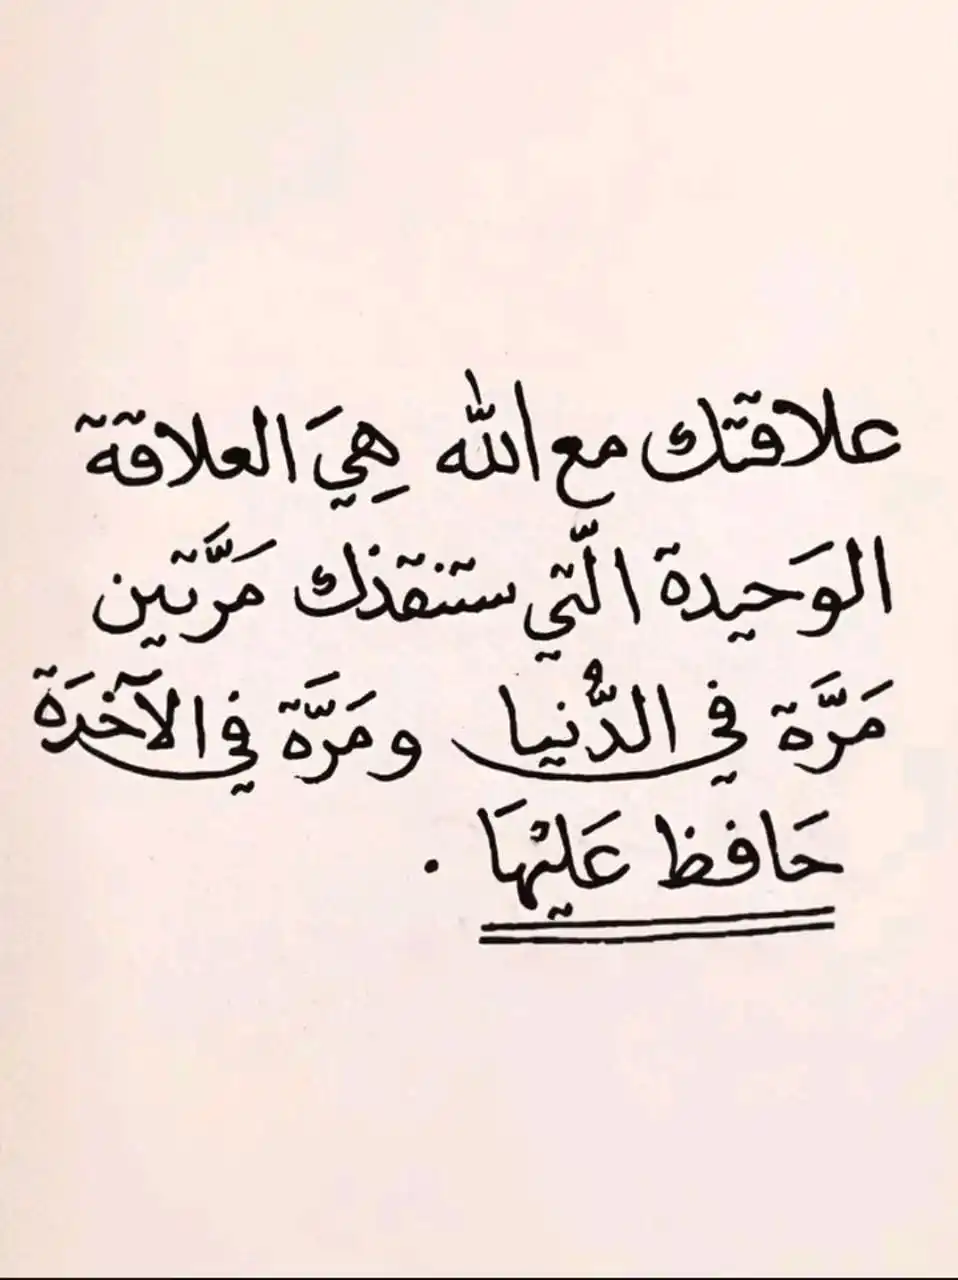 علاقتك مع الله هِيَ العلاقة
الوَحيدة الّتي ستنقذك مَرَّتين
مَرَّة في الدُّنيا ومَرَّة في الآخرَة
حَافظ عَليْهَا .